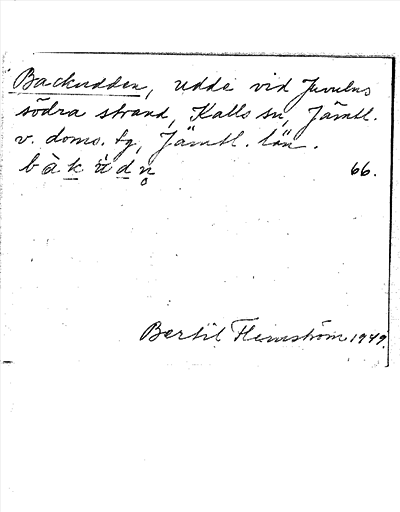 Backudden, udde vid Juvulns
södra strand, Kalls sn, Jämtl.
v. doms. tg, Jämtl. län.
b à k ù d n̥ 66.
Bertil Flemström 1949.